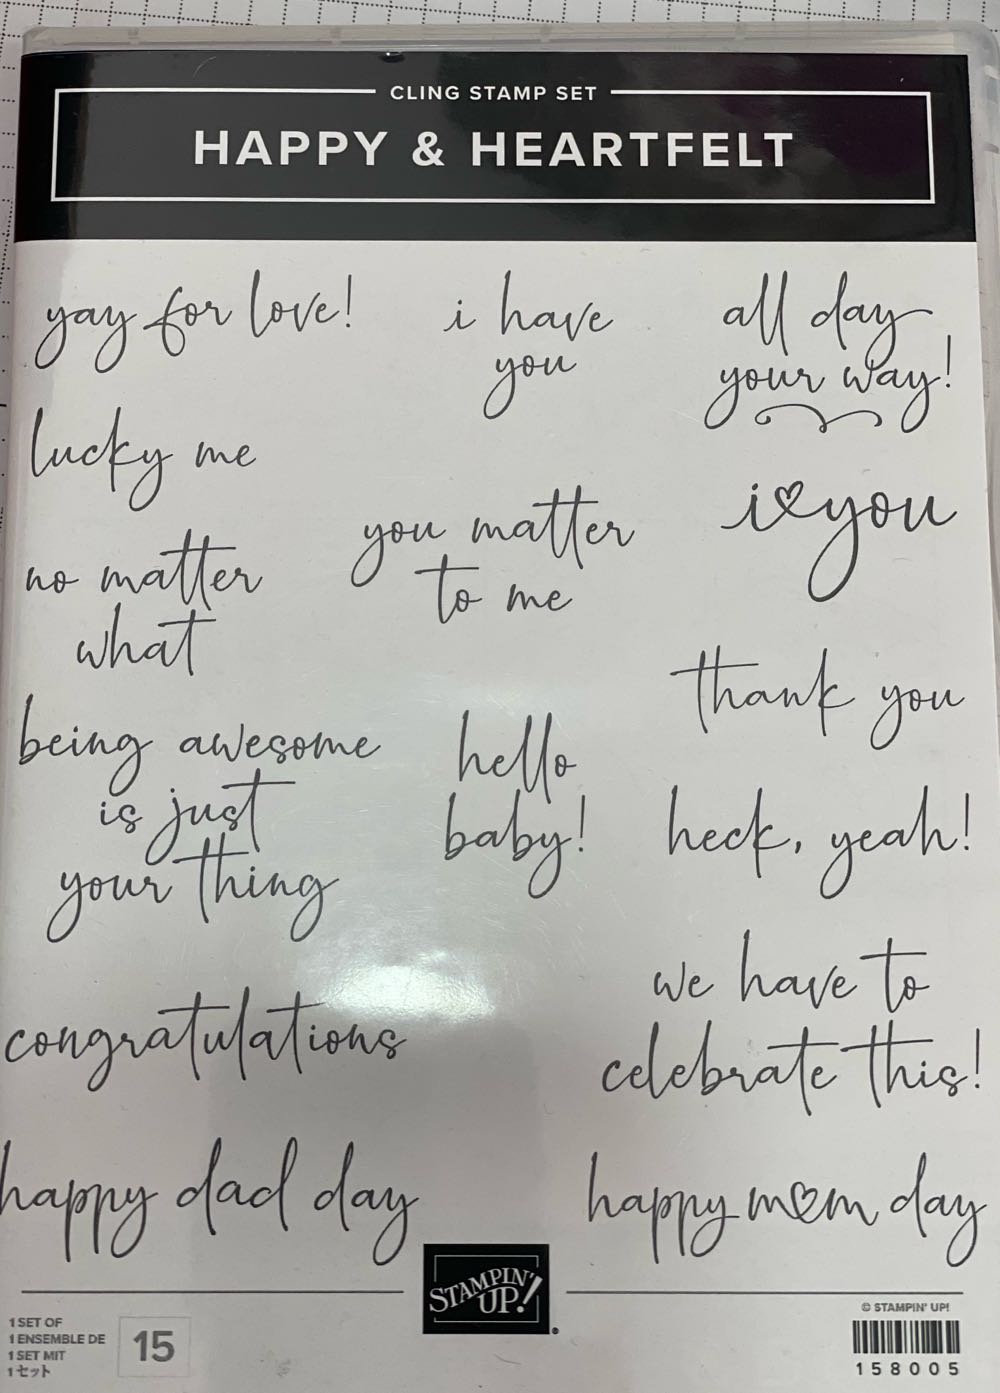 CLING STAMP SET
HAPPY & HEARTFELT
yay for love!
i have
you
all day
your way!
lucky me
you matter
to me
i♡you
no matter
what
thank you
being awesome
is just
your thing
hello
baby!
heck, yeah!
we have to
celebrate this!
congratulations
happy dad day
happy m♡m day
STAMPIN' UP!®
1 SET OF
1 ENSEMBLE DE
1 SET MIT
1セット
15
© STAMPIN' UP!
158005